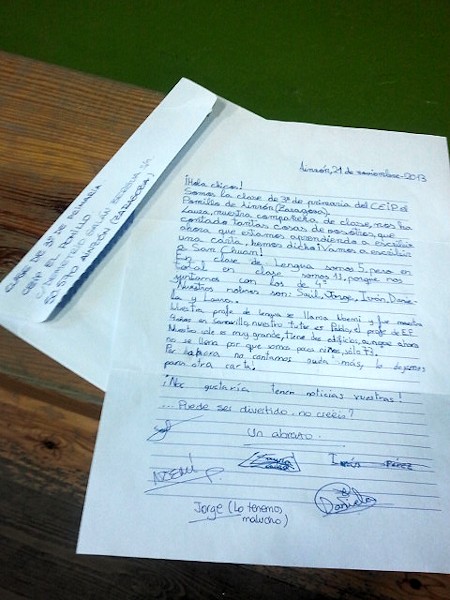 CLASE DE 3º DE PRIMARIA
CEIP EL POMILLO
50570 AINZÓN (ZARAGOZA)
Ainzón, 21 de noviembre-2013
¡Hola chicos!
Somos la clase de 3º de primaria del CEIP el
Pomillo de Ainzón (Zaragoza).
Laura, nuestra compañera de clase, nos ha
contado tantas cosas de vosotros, que
ahora que estamos aprendiendo a escribir
una carta, hemos dicho: ¡Vamos a escribir
a San Chuan!
En clase de Lengua somos 5, pero en
total en clase somos 11, porque nos
juntamos con los de 4º
Nuestros nobres son: Saúl, Jorge, Irisn, Danie-
la y Laura.
Nuestra profe de lengua se llama Noemí y fue
4 años en nuestro tutor es Pablo, el profe de E.F
Nuestro cole es muy grande, tiene dos edificios, aunque ahora
no se llena por que somos pocos niños, sólo 73.
Por ahora no contamos nada más, lo dejamos
para otra carta.
¡Nos gustaría tener noticias vuestras!
...Puede ser divertido no creéis?
Un abrazo.
Saúl
Laura
Pérez
NOEMÍ
Daniela
Jorge (Lo tenemos
malucho)